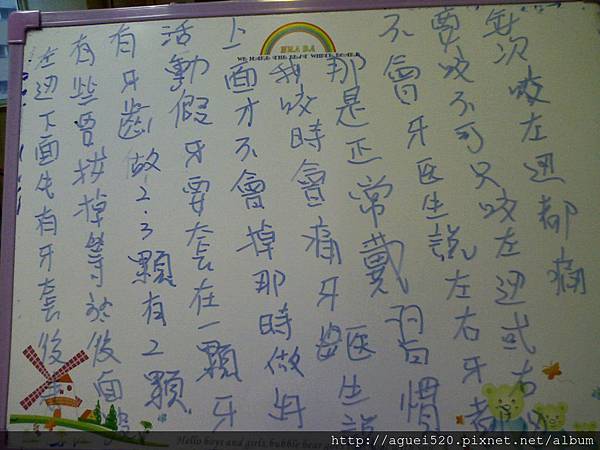 左边下面先有牙套後來
有些舊拔掉等於後面沒
有牙齒做2.3顆有2顆
活動假牙要套在一顆牙
上面才不會掉那時做好
我咬時會痛牙齒医生說
那是正常戴習慣
不會牙医生說左右牙都
要咬不可只咬左边或右边
每次咬左边都痛
Hello boys and girls, bubble bear
http://aguei520.pixnet.net/album